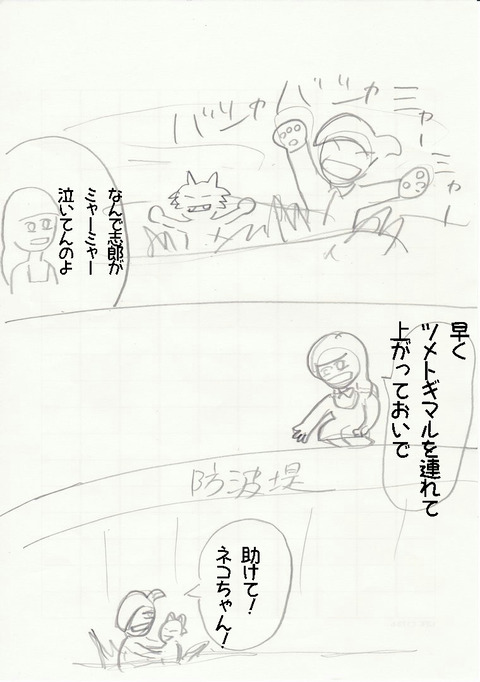 ミャー
ミャー
バシャ
バシャ
なんで志郎が
ミャーミャー
泣いてんのよ
早く
ツメトギマルを連れて
上がっておいで
防波堤
助けて!
ネコちゃん!